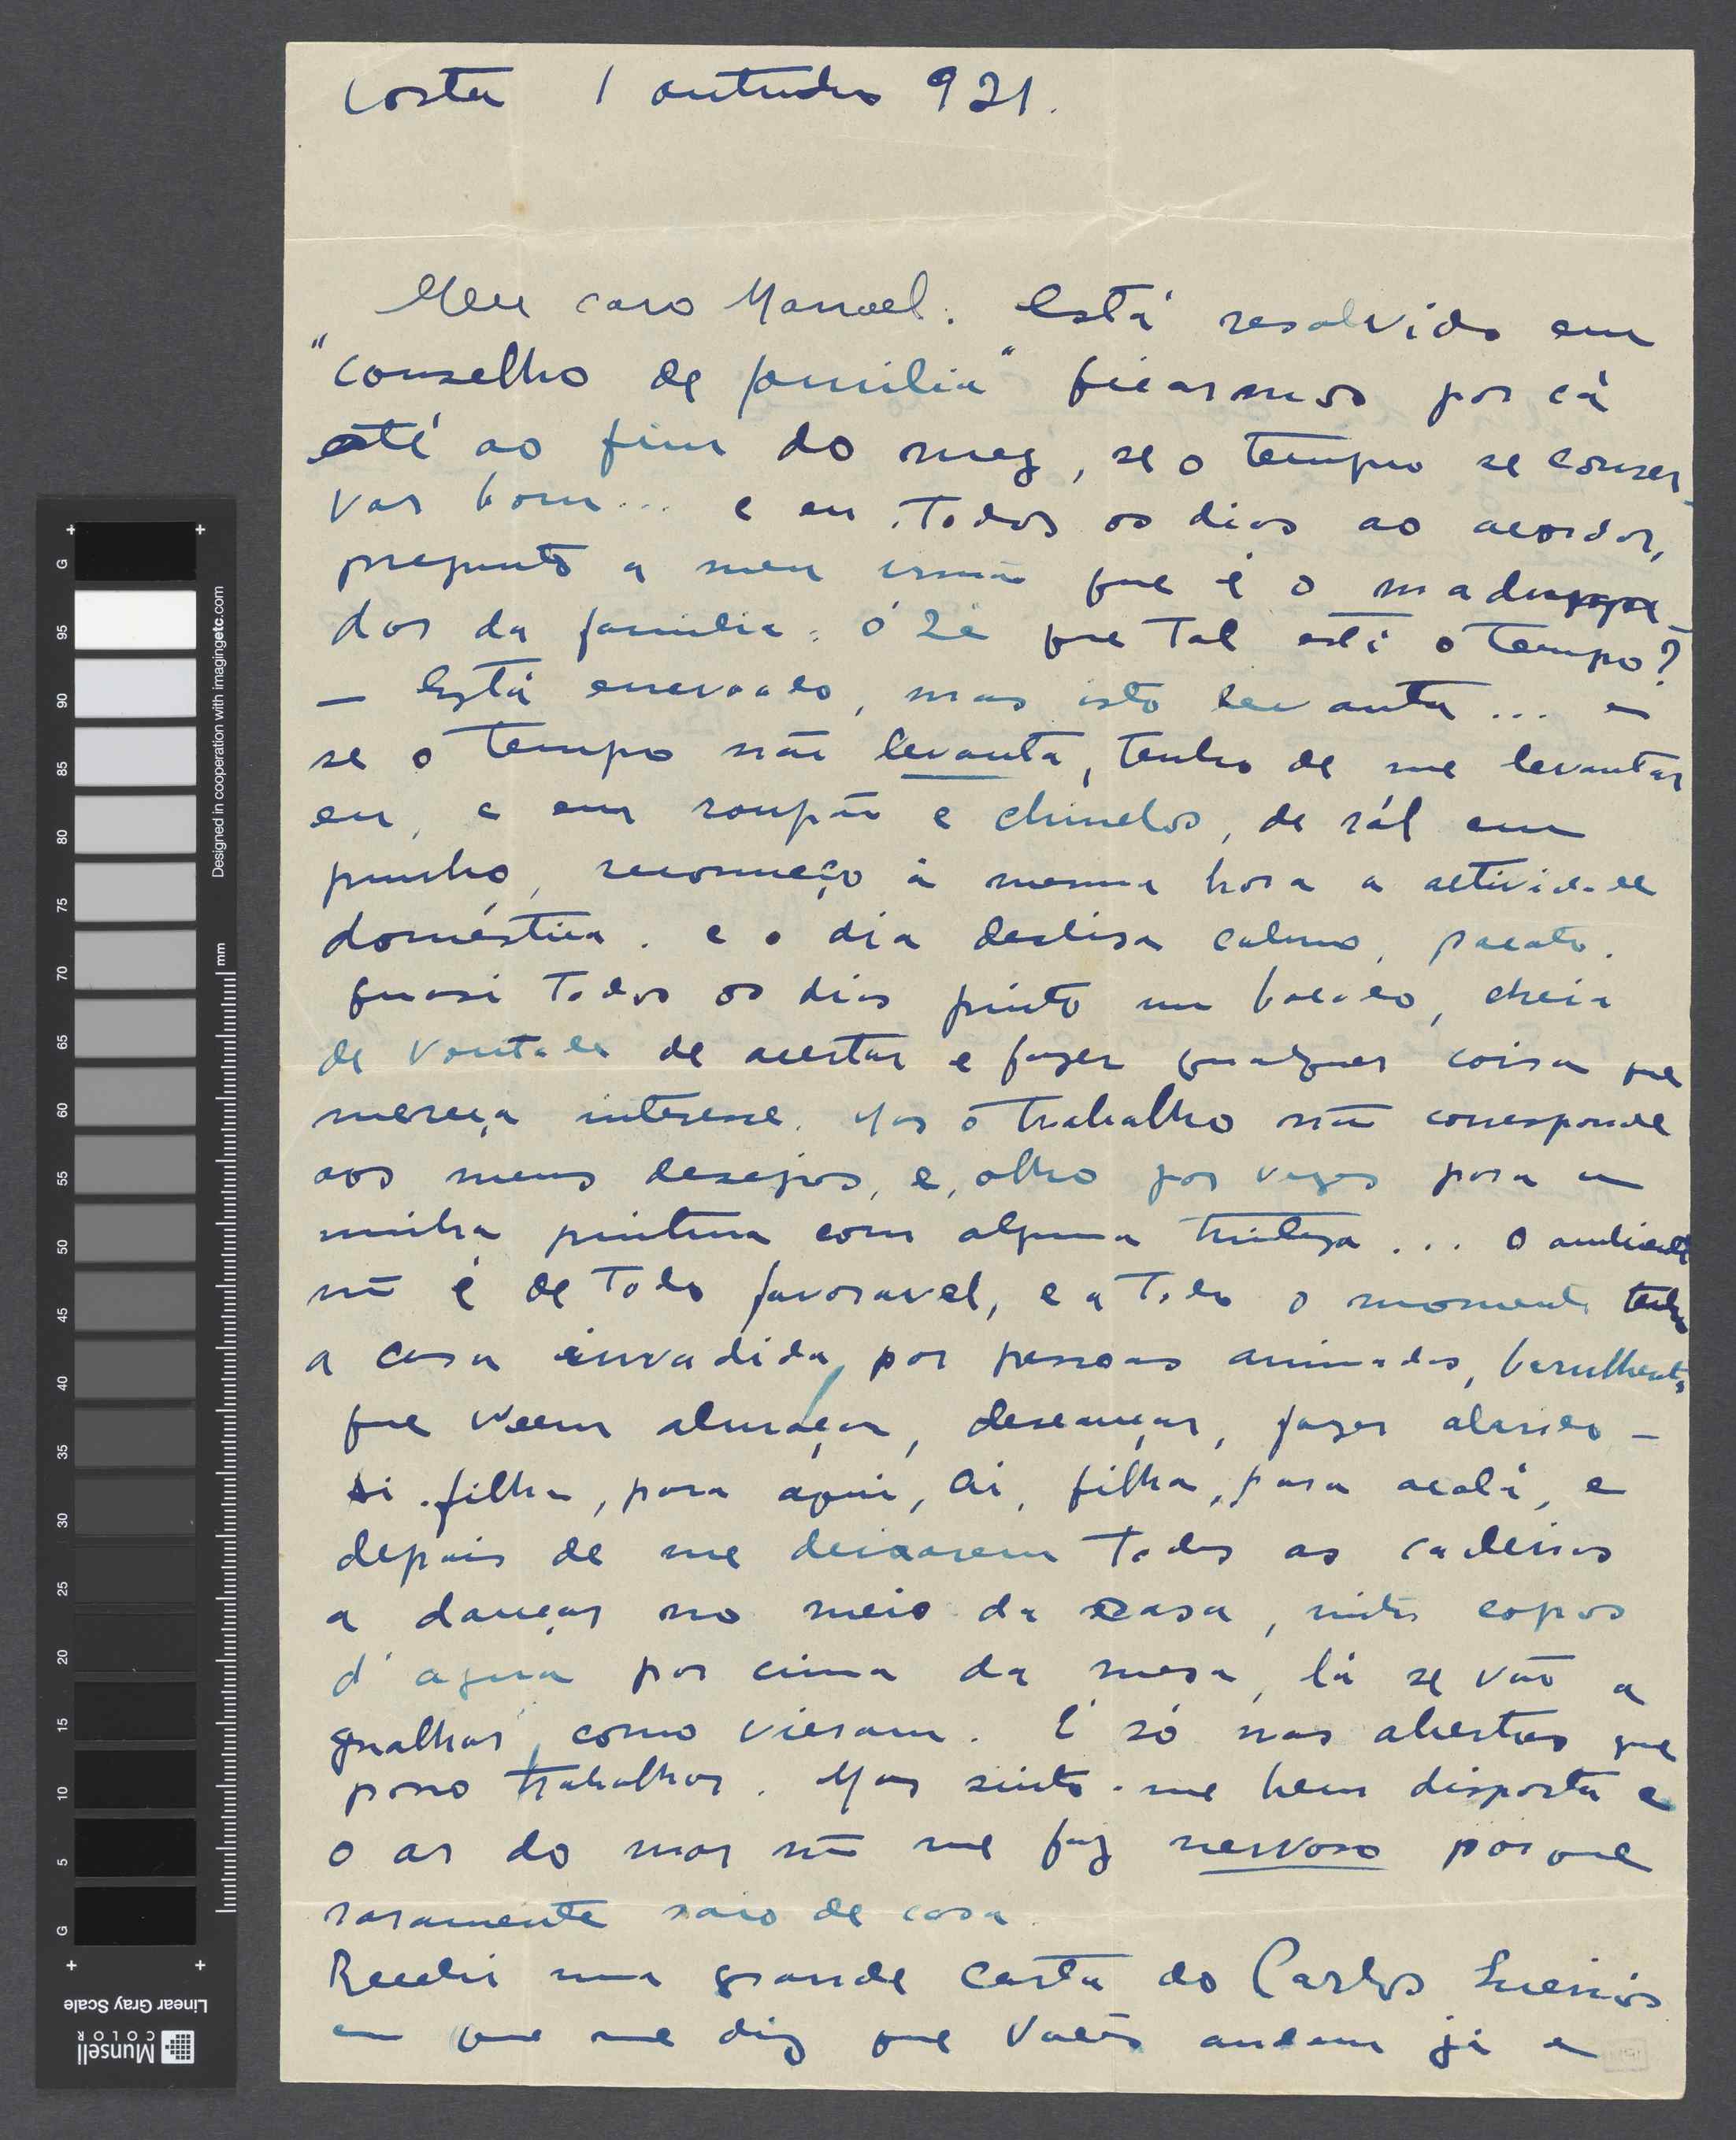 Costa 1 outubro 921.
Meu caro Manoel. Está resolvido em
"conselho de familia" ficarmos por cá
até ao fim do mez, se o tempo se conser-
var bom... e eu todos os dias ao acordar,
pregunto a meu irmão que é o madruga-
dor da familia: ó Zé que tal está o tempo?
— Está enevoado, mas isto levanta... e
se o tempo não levanta, tenho de me levantar
eu, e em roupão e chinelos, de
punho, recomeço á mesma hora a actividade
doméstica. e o dia deslisa calmo, pacato.
quasi todos os dias pinto um bocado, cheia
de vontade de acertar e fazer qualquer coisa que
mereça interesse. Mas o trabalho não corresponde
aos meus desejos, e, olho por vezes para a
minha pintura com alguma tristeza... O ambiente
não é de todo favoravel, e a todo o momento tenho
a casa invadida por pessoas animadas, barulhentas
que veem almoçar, descançar, fazer alarido —
Ai filha, para aqui, ai, filha, para acolá, e
depois de me deixarem todas as cadeiras
a dançar no meio da casa, muitos copos
d'agua por cima da mesa, lá se vão a
gralhar como vieram. É só nas abertas que
posso trabalhar. Mas sinto-me bem disposta e
o ar do mar não me faz nervoso porque
raramente saio de casa.
Recebi uma grande carta do Carlos
em que me diz que Vocês andam já a